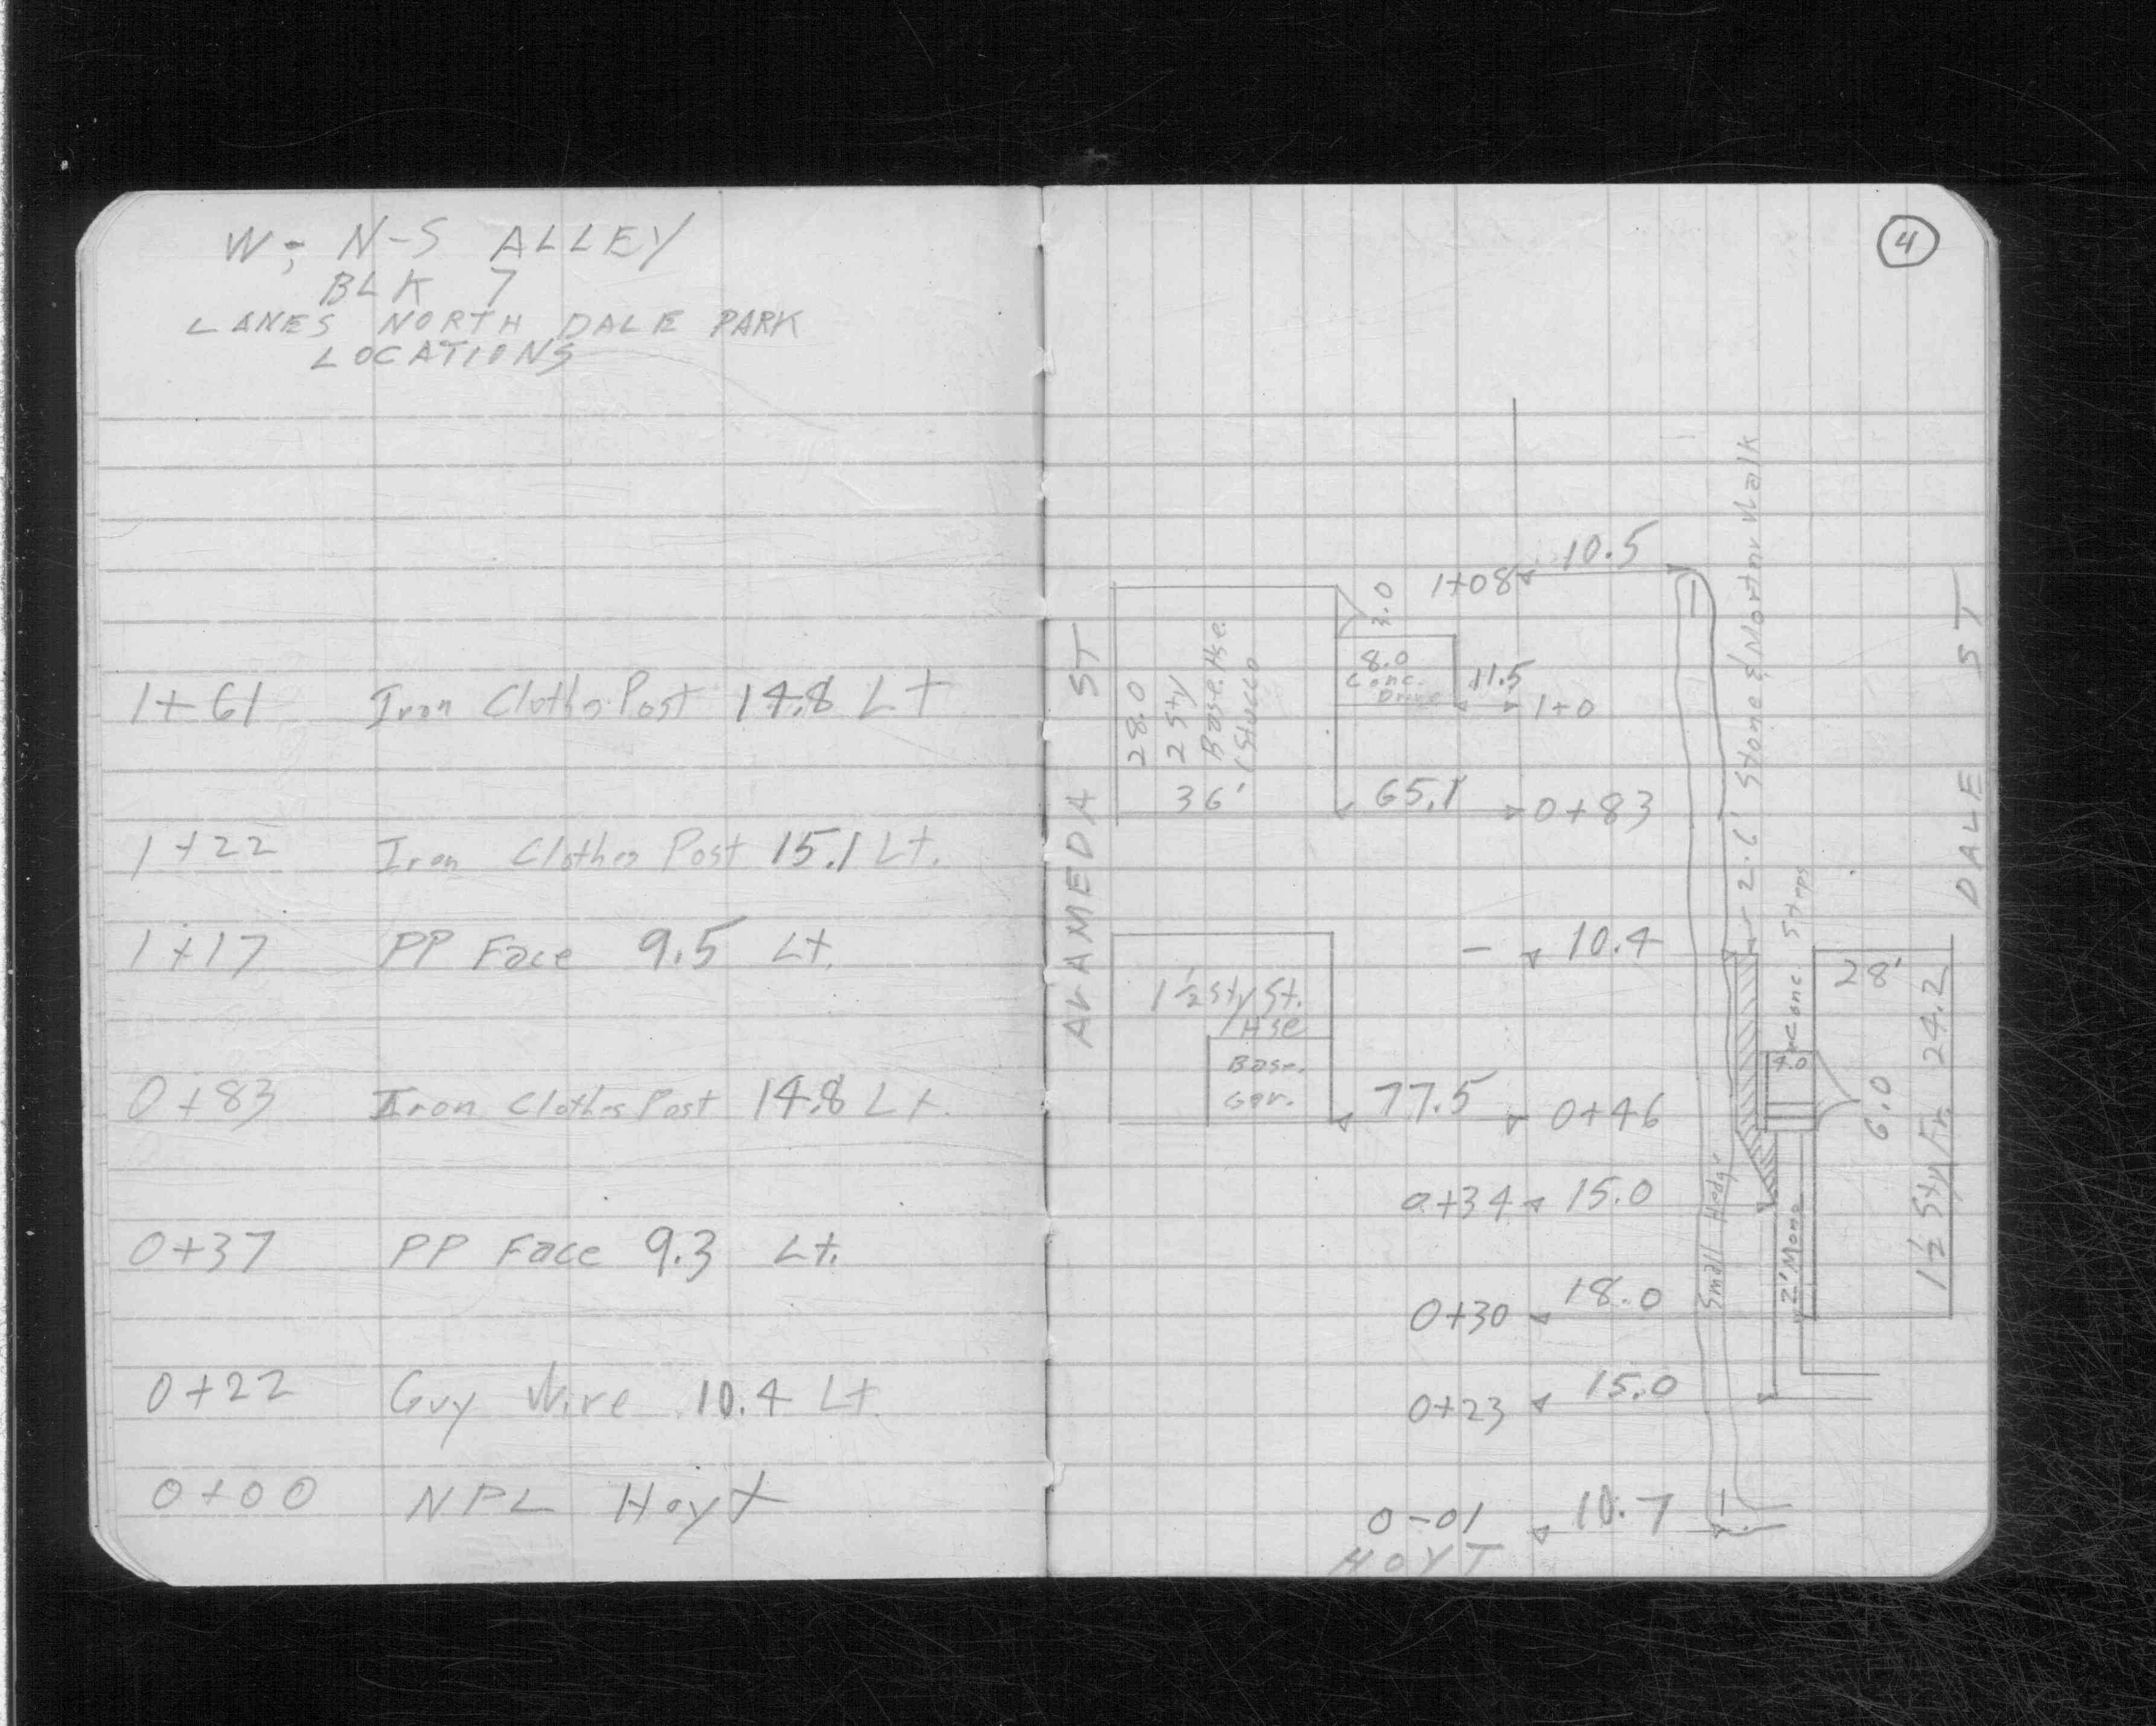 W; N-S ALLEY
BLK 7
LANES NORTH DALE PARK
LOCATIONS
1+61 Iron Clothes Post 14.8 Lt
1+22 Iron Clothes Post 15.1 Lt.
1+17 PP Face 9.5 Lt.
0+83 Iron Clothes Post 14.8 Lt.
0+37 PP Face 9.3 Lt.
0+22 Guy Wire 10.4 Lt.
0+00 NPL Hoyt
4
ALAMEDA ST
28.0
2 Sty
Base. Hse.
Stucco
36'
3.0
8.0
Conc.
Drive
1+08 10.5
11.5
1+0
65.1 0+83
2.6' Stone & Mortar Walk
DALE ST
- 10.4
1½ Sty St.
Hse
Base.
Gar.
77.5 0+46
Conc. Steps
4.0
28'
24.2
6.0
1½ Sty Fr.
0+34 15.0
Small Hedg'
2' Mono
0+30 18.0
0+23 15.0
0-01 10.7
HOYT